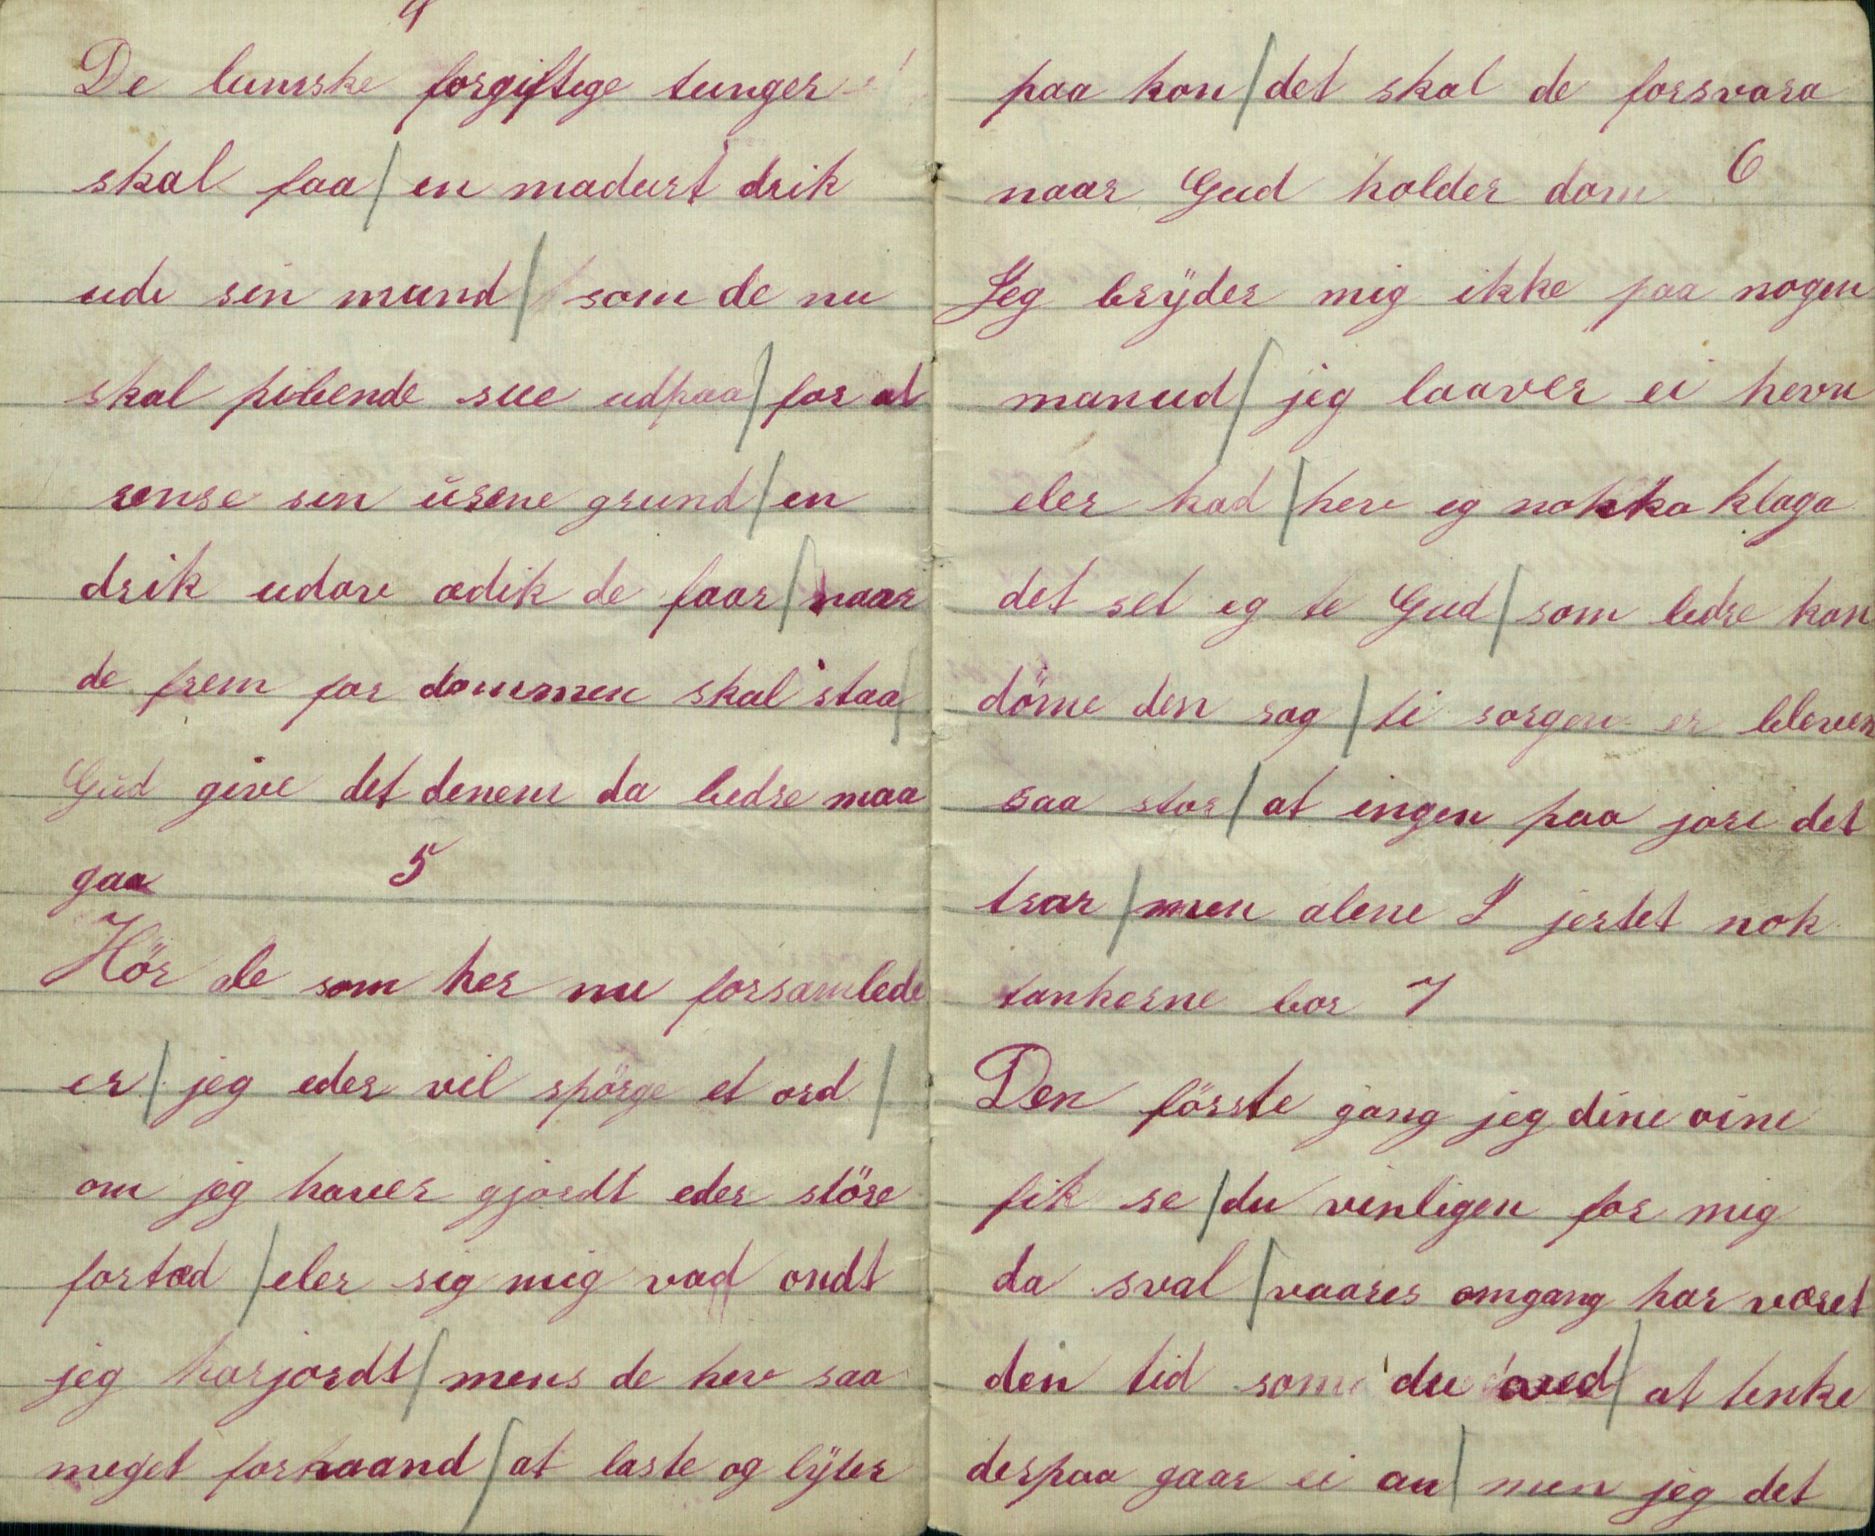 De lumske forgiftige tunger
skal faa / en madurt drik
udi sin mund / som de nu
skal pibende sue udpaa / for at
rense sin usene grund / en
drik udav ædik de faar / naar
de frem for dommen skal staa /
Gud give det denem da bedre maa
gaa 5
Hör ale som her nu forsamlede
er / jeg eder vil spörge et ord /
om jeg haver gjordt eder störe
fortæd / eler sig mig vad ondt
jeg harjordt / mens de hev saa
meget forhaand / at laste og lÿter
paa kon / det skal de forsvara
naar Gud holder dom 6
Jeg brÿder mig ikke paa nogen
manud / jeg laaver ei hevn
eler had / hev eg nokka klaga
det set eg te Gud / som bedre kan
döme den sag / ti sorgen er bleven
saa stor / at ingen paa jore det
trar / men alene I jertet nok
tankerne bor 7
Den förste gang jeg dine oine
fik se / du vinligen for mig
da sval / vaares omgang har været
den tid som du ved / at tenke
derpaa gaar ei an / men jeg det